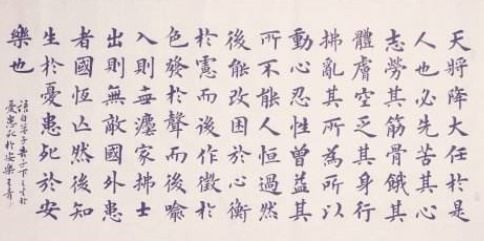 天將降大任於是
人也必先苦其心
志勞其筋骨餓其
體膚空乏其身行
拂亂其所為所以
動心忍性曾益其
所不能人恒過然
後能改困於心衡
於慮而後作徵於
色發於聲而後喻
入則毋灋家拂士
出則無敵國外患
者國恆亡然後知
生於憂患死於安
樂也
語自孟子告子下生於
憂患死於安樂